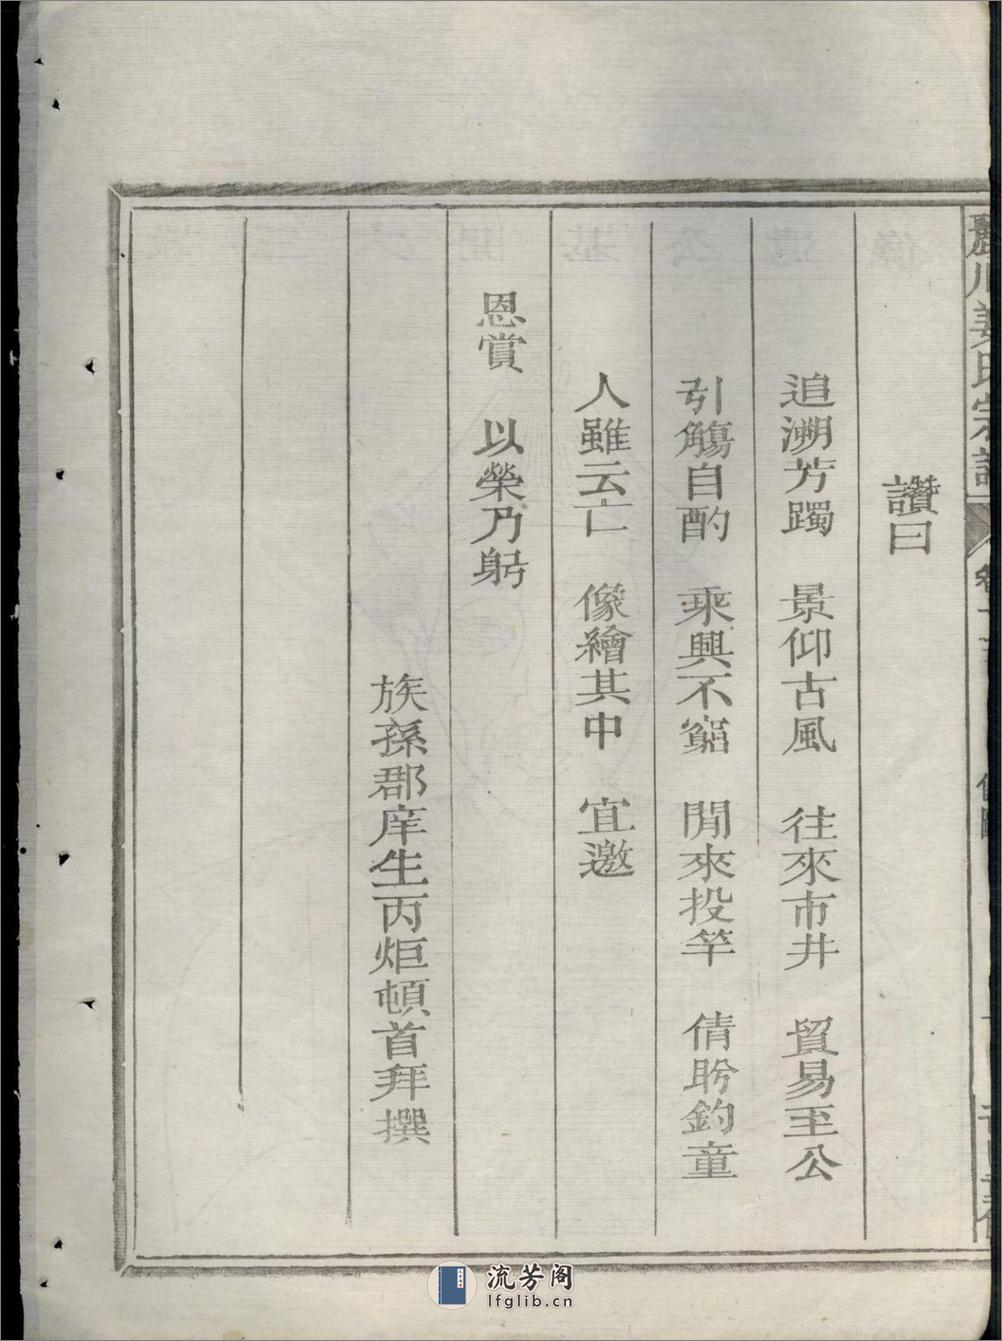 姜氏宗譜
讚曰
追溯芳躅 景仰古風 往來市井 貿易至公
引觴自酌 乘興不窮 閒來投竿 倩盼釣童
人雖云亡 像繪其中 宜邀
恩賞 以榮乃躬
族孫郡庠生丙炬頓首拜撰
流芳阁
lfglib.cn